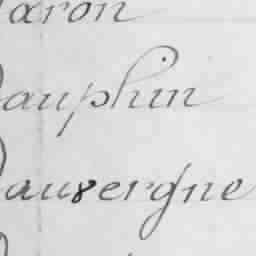 aron
auphin
auvergne